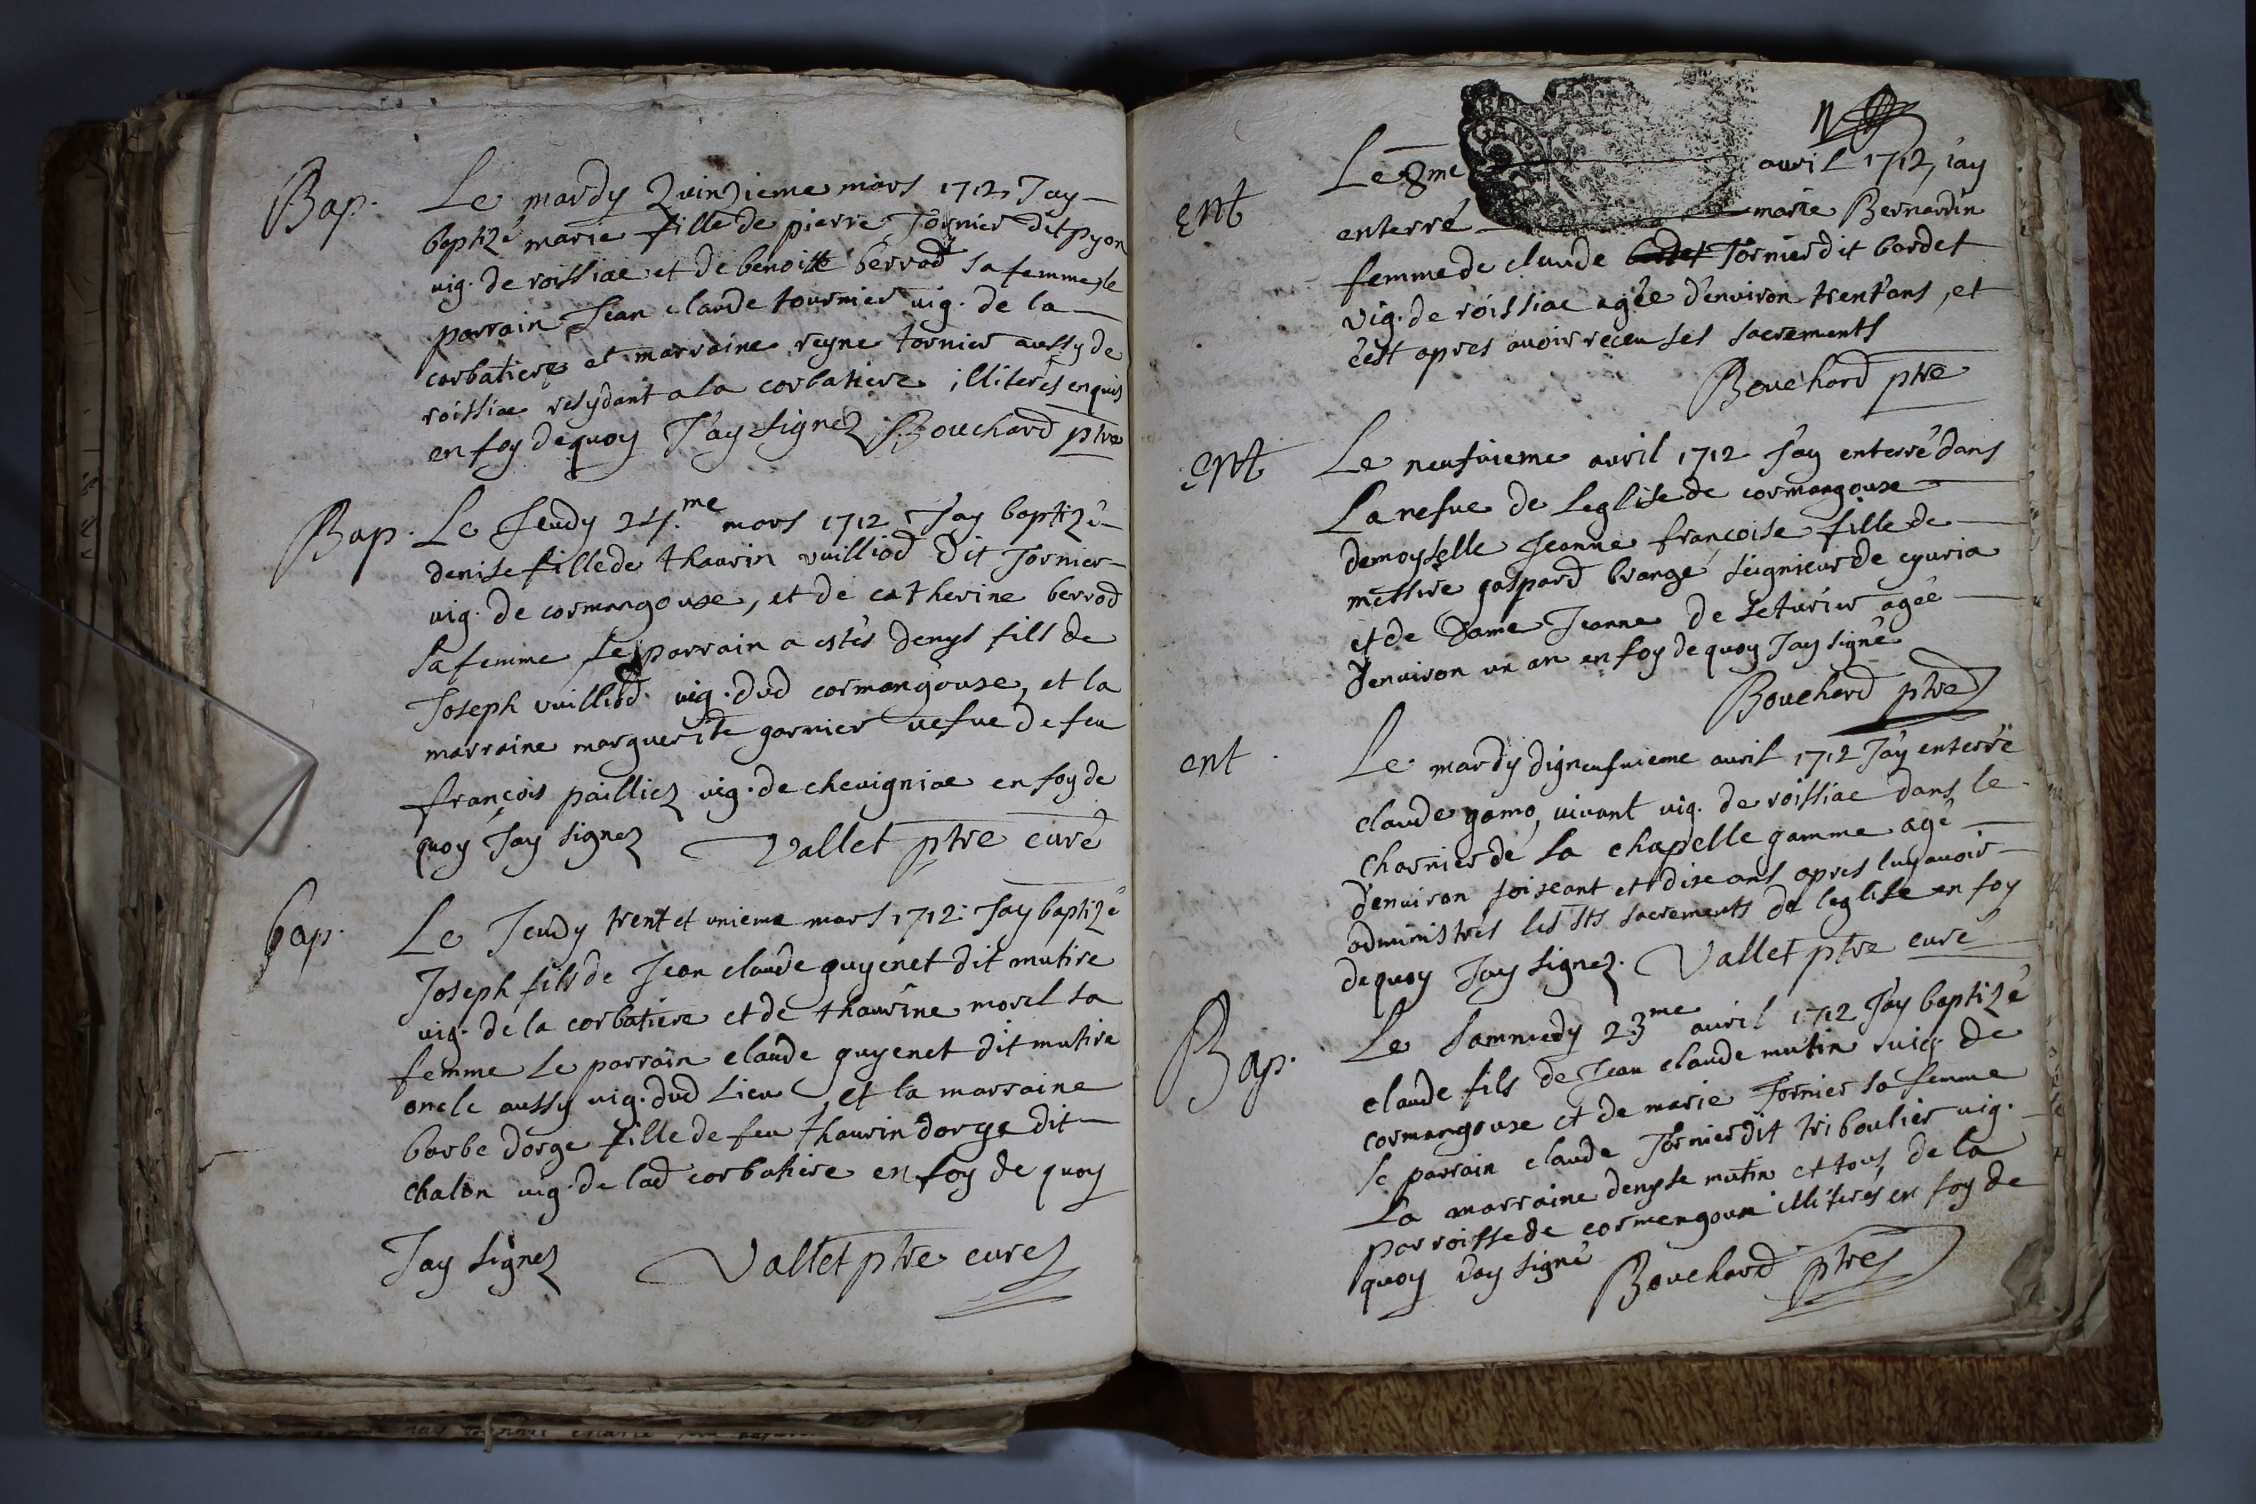 Bap. Le mardy quinzieme mars 1712 Jay
baptizé marie fille de pierre Tornier dit pyon
vig. de roissiac et de benoitte berrod sa femme, le
parrain Jean claude tournier vig. de la
corbatiere et marraine reyne tornier aussy de
roissiac resydant a la corbatiere illiterés enquis
en foy de quoy J'ay signez Bouchard ptre
Bap. Le Jeudy 24.me mars 1712 Jay baptizé
denise fille de thaurin vuilliod dit Tornier
vig. de cormangoux, et de catherine berrod
sa femme le parrain a estés denys fils de
Joseph vuilliod vig. dud cormangoux, et la
marraine marguerite garnier vefve de feu
françois pailliez vig. de chevigniac en foy de
quoy Jay signez Vallet ptre curé
bap. Le Jeudy trent et unieme mars 1712. Jay baptizé
Joseph fils de Jean claude guyenet dit mutire
vig. de la corbatiere et de thaurine morel sa
femme le parrain claude guyenet dit mutire
oncle aussy vig. dud Lieu, et la marraine
barbe dorge fille de feu thaurin dorge dit
chalon vig. de lad corbatiere en foy de quoy
Jay signez Vallet ptre curez
ent Le 8me avril 1712, i'ay
enterré marie Bernardin
femme de claude bordet Tornier dit bordet
vig. de roissiac agée d'environ trent'ans, et
c'est apres avoir receu ses sacrements
Bouchard ptre
ent Le neufvieme avril 1712 J'ay enterré dans
La nefve de Leglise de cormangoux
demoyselle Jeanne françoise fille de
messire gaspard brangé seignieur de cyuria
et de Dame Jeanne de Leturier agée
d'environ un an en foy de quoy Jay signé
Bouchard ptre
ent. Le mardy digneufvieme avril 1712 J'ay enterré
claude gamo, vivant vig. de roissiac dans le
charnier de la chapelle gamme agé
d'environ soiseant et dix ans apres luy avoir
administrés les sts sacrements de leglise en foy
de quoy Jay signez. Vallet ptre curé
Bap. Le Sammedy 23me avril 1712 J'ay baptizé
claude fils de Jean claude mutin vig. de
cormangoux et de marie Tornier sa femme
le parrain claude Tornier dit triboulier vig.
La marraine denyse mutin et tous de la
parroisse de cormengoux illiterés en foy de
quoy i'ay signé Bouchard ptre